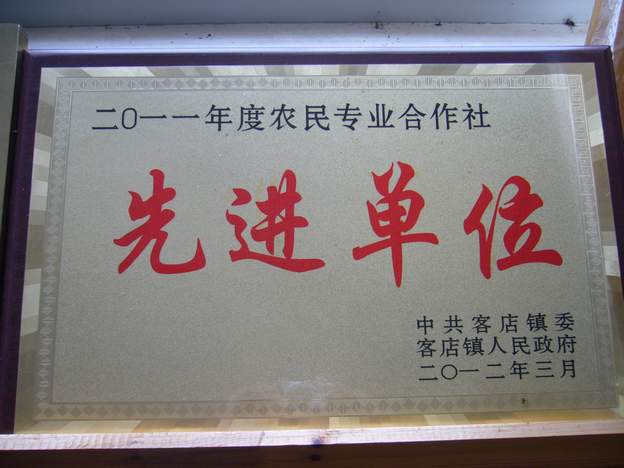 二〇一一年度农民专业合作社
先进单位
中共客店镇委
客店镇人民政府
二〇一二年三月